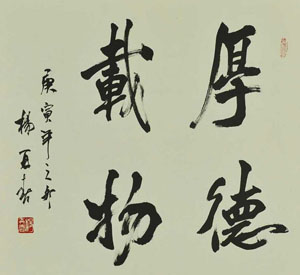 厚德
載物
庚寅年之
楊